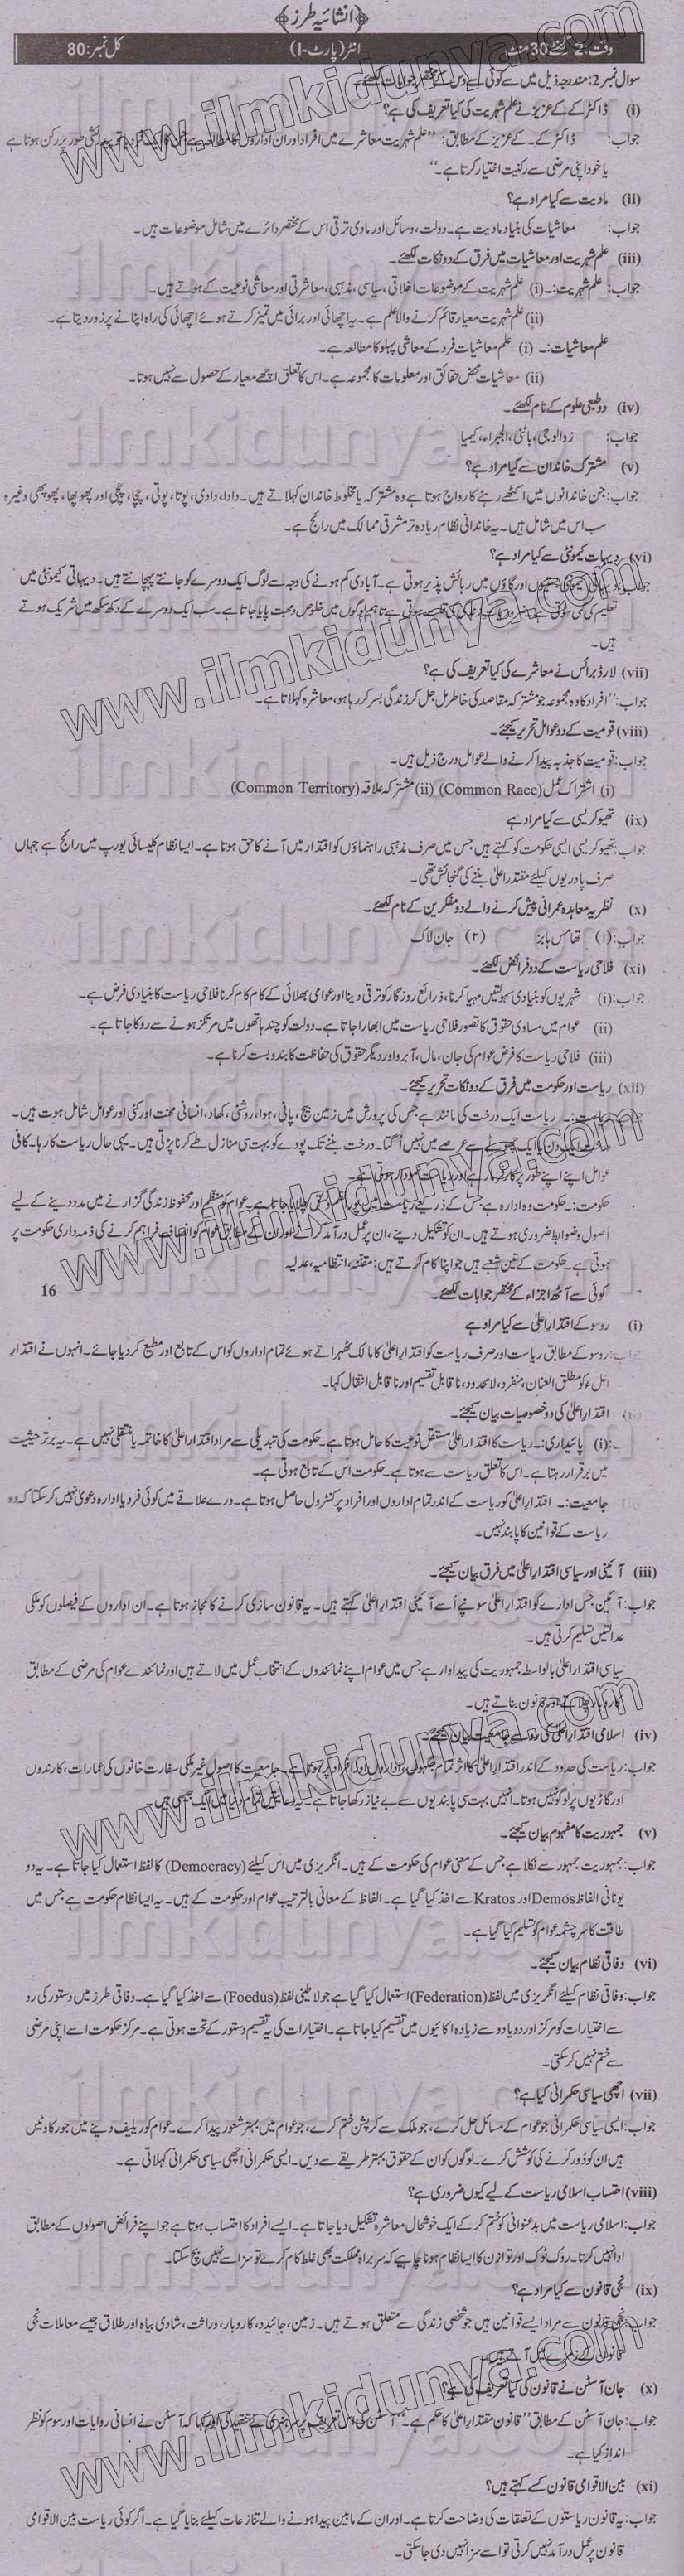 ﴿انشائیہ طرز﴾
وقت: 2 گھنٹے 30 منٹ انٹر (پارٹ-I) کل نمبر: 80
سوال نمبر 2: مندرجہ ذیل میں سے کوئی سے دس کے مختصر جوابات لکھئے۔
(i) ڈاکٹر کے کے عزیز نے علم شہریت کی کیا تعریف کی ہے؟
جواب: ڈاکٹر کے۔ کے عزیز کے مطابق: ’’علم شہریت معاشرے میں افراد اور ان اداروں کا مطالعہ ہے جن کا ایک فرد تو پیدائشی طور پر رکن ہوتا ہے
یا خود اپنی مرضی سے رکنیت اختیار کرتا ہے۔‘‘
(ii) مادیت سے کیا مراد ہے؟
جواب: معاشیات کی بنیاد مادیت ہے۔ دولت، وسائل اور مادی ترقی اس کے مختصر دائرے میں شامل موضوعات ہیں۔
(iii) علم شہریت اور معاشیات میں فرق کے دو نکات لکھئے۔
جواب: علم شہریت:۔ (i) علم شہریت کے موضوعات اخلاقی، سیاسی، مذہبی، معاشرتی اور معاشی نوعیت کے ہوتے ہیں۔
(ii) علم شہریت معیار قائم کرنے والا علم ہے۔ یہ اچھائی اور برائی میں تمیز کرتے ہوئے اچھائی کی راہ اپنانے پر زور دیتا ہے۔
علم معاشیات:۔ (i) علم معاشیات فرد کے معاشی پہلو کا مطالعہ ہے۔
(ii) معاشیات محض حقائق اور معلومات کا مجموعہ ہے۔ اس کا تعلق اچھے معیار کے حصول سے نہیں ہوتا۔
(iv) دو طبعی علوم کے نام لکھئے۔
جواب: زوالوجی، باٹنی، الجبراء، کیمیا
(v) مشترک خاندان سے کیا مراد ہے؟
جواب: جن خاندانوں میں اکٹھے رہنے کا رواج ہوتا ہے وہ مشترکہ یا مخلوط خاندان کہلاتے ہیں۔ دادا، دادی، پوتا، پوتی، چچا، چچی اور پھوپھا، پھوپھی وغیرہ
سب اس میں شامل ہیں۔ یہ خاندانی نظام زیادہ تر مشرقی ممالک میں رائج ہے۔
(vi) دیہات کیمونٹی سے کیا مراد ہے؟
جواب: دیہاتی کیمونٹی اور گاؤں میں رہائش پذیر ہوتی ہے۔ آبادی کم ہونے کی وجہ سے لوگ ایک دوسرے کو جانتے پہچانتے ہیں۔ دیہاتی کیمونٹی میں
تعلیم کی کمی ہوتی ہے۔ کی قلت ہوتی ہے تاہم لوگوں میں خلوص و محبت پایا جاتا ہے۔ سب ایک دوسرے کے دکھ سکھ میں شریک ہوتے
ہیں۔
(vii) لارڈ برائس نے معاشرے کی کیا تعریف کی ہے؟
جواب: ’’افراد کا وہ مجموعہ جو مشترکہ مقاصد کی خاطر مل جل کر زندگی بسر کر رہا ہو، معاشرہ کہلاتا ہے۔
(viii) قومیت کے دو عوامل تحریر کیجئے۔
جواب: قومیت کا جذبہ پیدا کرنے والے عوامل درج ذیل ہیں۔
(i) اشتراک عمل (Common Race) (ii) مشترکہ علاقہ (Common Territory)
(ix) تھیوکریسی سے کیا مراد ہے
جواب: تھیوکریسی ایسی حکومت کو کہتے ہیں جس میں صرف مذہبی راہنماؤں کو اقتدار میں آنے کا حق ہوتا ہے۔ ایسا نظام کلیسائی یورپ میں رائج ہے جہاں
صرف پادریوں کیلئے مقتدر اعلیٰ بننے کی گنجائش تھی۔
(x) نظریہ معاہدہ عمرانی پیش کرنے والے دو مفکرین کے نام لکھئے۔
جواب: (۱) تھامس ہابز (۲) جان لاک
(xi) فلاحی ریاست کے دو فرائض لکھئے۔
جواب: (i) شہریوں کو بنیادی سہولتیں مہیا کرنا، ذرائع روزگار کو ترقی دینا اور عوامی بھلائی کے کام کرنا فلاحی ریاست کا بنیادی فرض ہے۔
(ii) عوام میں مساوی حقوق کا تصور فلاحی ریاست میں ابھارا جاتا ہے۔ دولت کو چند ہاتھوں میں مرتکز ہونے سے روکا جاتا ہے۔
(iii) فلاحی ریاست کا فرض عوام کی جان، مال، آبرو اور دیگر حقوق کی حفاظت کا بندوبست کرنا ہے۔
(xii) ریاست اور حکومت میں فرق کے دو نکات تحریر کیجئے۔
جواب: ریاست:۔ ریاست ایک درخت کی مانند ہے جس کی پرورش میں زمین بیج، پانی، ہوا، روشنی، کھاد، انسانی محنت اور کئی اور عوامل شامل ہوتے ہیں۔
درخت ایک دن یا ایک چھوٹے سے عرصے میں نہیں اُگتا۔ درخت بننے تک پودے کو بہت سی منازل طے کرنا پڑتی ہیں۔ یہی حال ریاست کا رہا۔ کافی
عوامل اپنے اپنے طور پر کارفرما رہے اور ریاست نمودار ہوتی ہے۔
حکومت:۔ حکومت وہ ادارہ ہے جس کے ذریعے ریاست میں چلایا جاتا ہے۔ عوام کو منظم اور محفوظ زندگی گزارنے میں مدد دینے کے لیے
اُصول و ضوابط ضروری ہوتے ہیں۔ ان کو تشکیل دینے، ان پر عمل درآمد کرانے اور ان کے مطابق عوام کو انصاف فراہم کرنے کی ذمہ داری حکومت پر
ہوتی ہے۔ حکومت کے تین شعبے ہیں جو اپنا کام کرتے ہیں: مقننہ، انتظامیہ، عدلیہ
کوئی سے آٹھ اجزاء کے مختصر جوابات لکھئے۔ 16
(i) روسو کے اقتدار اعلیٰ سے کیا مراد ہے
جواب: روسو کے مطابق ریاست اور صرف ریاست کو اقتدار اعلیٰ کا مالک ٹھہراتے ہوئے تمام اداروں کو اس کے تابع اور مطیع کر دیا جائے۔ انہوں نے اقتدار
اعلیٰ کو مطلق العنان، منفرد، لامحدود، ناقابل تقسیم اور ناقابل انتقال کہا۔
اقتدار اعلیٰ کی دو خصوصیات بیان کیجئے۔
(i) پائیداری:۔ ریاست کا اقتدار اعلیٰ مستقل نوعیت کا حامل ہوتا ہے۔ حکومت کی تبدیلی سے مراد اقتدار اعلیٰ کا خاتمہ یا منتقلی نہیں ہے۔ یہ برتر حیثیت
میں برقرار رہتا ہے۔ اس کا تعلق ریاست سے ہوتا ہے۔ حکومت اس کے تابع ہوتی ہے۔
جامعیت:۔ اقتدار اعلیٰ کو ریاست کے اندر تمام اداروں اور افراد پر کنٹرول حاصل ہوتا ہے۔ ورے علاقے میں کوئی فرد یا ادارہ دعویٰ نہیں کر سکتا کہ وہ
ریاست کے قوانین کا پابند نہیں۔
(iii) آئینی اور سیاسی اقتدار اعلیٰ میں فرق بیان کیجئے۔
جواب: آئین جس ادارے کو اقتدار اعلیٰ سونپے اُسے آئینی اقتدار اعلیٰ کہتے ہیں۔ یہ قانون سازی کرنے کا مجاز ہوتا ہے۔ ان اداروں کے فیصلوں کو ملکی
عدالتیں تسلیم کرتی ہیں۔
سیاسی اقتدار اعلیٰ بالواسطہ جمہوریت کی پیداوار ہے جس میں عوام اپنے نمائندوں کے انتخاب عمل میں لاتے ہیں اور نمائندے عوام کی مرضی کے مطابق
کاروبار چلاتے اور قانون بناتے ہیں۔
(iv) اسلامی اقتدار اعلیٰ کی رو سے جامعیت بیان کیجئے۔
جواب: ریاست کی حدود کے اندر اقتدار اعلیٰ کا اثر تمام شہریوں، اداروں اور افراد پر ہوتا ہے۔ جامعیت کا اصول غیر ملکی سفارت خانوں کی عمارات، کارندوں
اور گاڑیوں پر لاگو نہیں ہوتا۔ انہیں بہت سی پابندیوں سے بے نیاز رکھا جاتا ہے۔ یہ رعایتیں تمام دنیا میں ایک جیسی ہیں۔
(v) جمہوریت کا مفہوم بیان کیجئے۔
جواب: جمہوریت جمہور سے نکلا ہے جس کے معنی عوام کی حکومت کے ہیں۔ انگریزی میں اس کیلئے (Democracy) کا لفظ استعمال کیا جاتا ہے۔ یہ دو
یونانی الفاظ Demos اور Kratos سے اخذ کیا گیا ہے۔ الفاظ کے معانی بالترتیب عوام اور حکومت کے ہیں۔ یہ ایسا نظام حکومت ہے جس میں
طاقت کا سرچشمہ عوام کو تسلیم کیا گیا ہے۔
(vi) وفاقی نظام بیان کیجئے۔
جواب: وفاقی نظام کیلئے انگریزی میں لفظ (Federation) استعمال کیا گیا ہے جو لاطینی لفظ (Foedus) سے اخذ کیا گیا ہے۔ وفاقی طرز میں دستور کی رو
سے اختیارات کو مرکز اور دو یا دو سے زیادہ اکائیوں میں تقسیم کیا جاتا ہے۔ اختیارات کی یہ تقسیم دستور کے تحت ہوتی ہے۔ مرکز حکومت اسے اپنی مرضی
سے ختم نہیں کر سکتی۔
(vii) اچھی سیاسی حکمرانی کیا ہے؟
جواب: ایسی سیاسی حکمرانی جو عوام کے مسائل حل کرے، جو ملک سے کرپشن ختم کرے، جو عوام میں بہتر شعور پیدا کرے۔ عوام کو ریلیف دینے میں جو رکاوٹیں
ہیں ان کو دُور کرنے کی کوشش کرے۔ لوگوں کو ان کے حقوق بہتر طریقے سے دیں۔ ایسی حکمرانی اچھی سیاسی حکمرانی کہلاتی ہے۔
(viii) احتساب اسلامی ریاست کے لیے کیوں ضروری ہے؟
جواب: اسلامی ریاست میں بدعنوانی کو ختم کر کے ایک خوشحال معاشرہ تشکیل دیا جاتا ہے۔ ایسے افراد کا احتساب ہوتا ہے جو اپنے فرائض اصولوں کے مطابق
ادا نہیں کرتا۔ روک ٹوک اور توازن کا ایسا نظام ہونا چاہیے کہ سربراہ مملکت بھی غلط کام کرے تو سزا سے نہیں بچ سکتا۔
(ix) نجی قانون سے کیا مراد ہے؟
جواب: نجی قانون سے مراد ایسے قوانین ہیں جو شخصی زندگی سے متعلق ہوتے ہیں۔ زمین، جائیداد، کاروبار، وراثت، شادی بیاہ اور طلاق جیسے معاملات نجی
قانون کے زمرے میں آتے ہیں۔
(x) جان آسٹن نے قانون کی کیا تعریف کی ہے؟
جواب: جان آسٹن کے مطابق ’’قانون مقتدار اعلیٰ کا حکم ہے۔‘‘ آسٹن کی اس تعریف پر سر ہنری نے تنقید کی اور کہا کہ آسٹن نے انسانی روایات اور رسوم کو نظر
انداز کیا ہے۔
(xi) بین الاقوامی قانون کسے کہتے ہیں؟
جواب: یہ قانون ریاستوں کے تعلقات کی وضاحت کرتا ہے۔ اور ان کے مابین پیدا ہونے والے تنازعات کیلئے بنایا گیا ہے۔ اگر کوئی ریاست بین الاقوامی
قانون پر عمل درآمد نہیں کرتی تو اسے سزا نہیں دی جا سکتی۔